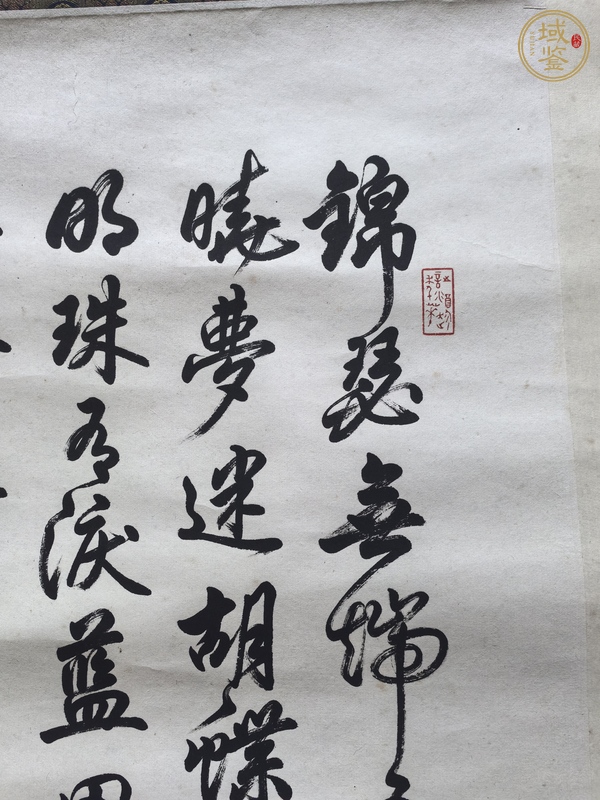 錦瑟無端
曉夢迷胡蝶
明珠有淚藍田
域鉴